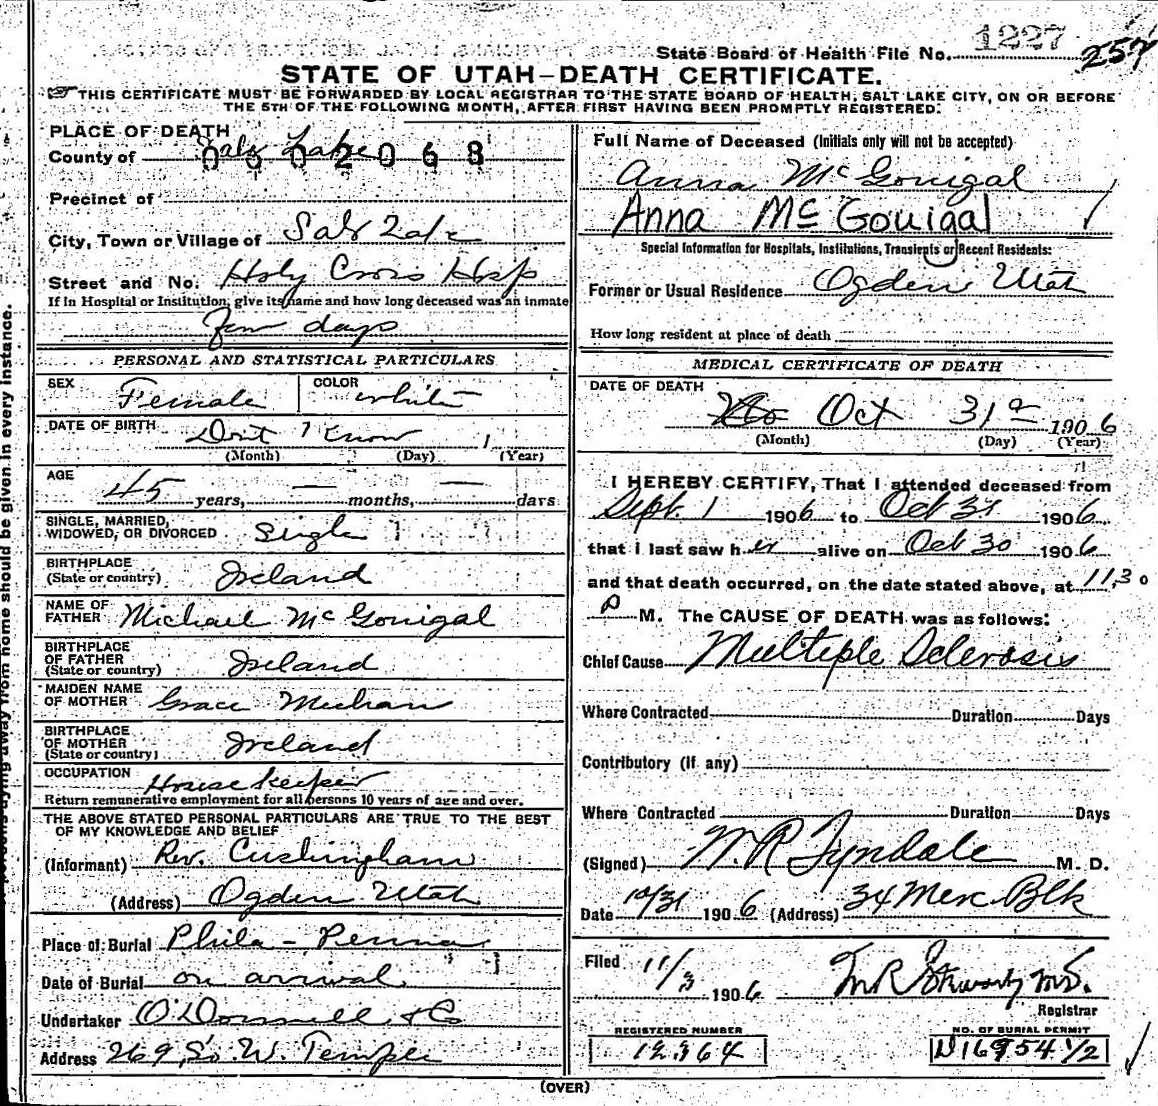 1227
State Board of Health File No. 257
STATE OF UTAH—DEATH CERTIFICATE.
THIS CERTIFICATE MUST BE FORWARDED BY LOCAL REGISTRAR TO THE STATE BOARD OF HEALTH, SALT LAKE CITY, ON OR BEFORE
THE 5TH OF THE FOLLOWING MONTH, AFTER FIRST HAVING BEEN PROMPTLY REGISTERED.
PLACE OF DEATH
County of Salt Lake
0502068
Precinct of
City, Town or Village of Salt Lake
Street and No. Holy Cross Hosp
If in Hospital or Institution, give its name and how long deceased was an inmate
Few days
PERSONAL AND STATISTICAL PARTICULARS
SEX Female COLOR white
DATE OF BIRTH Dont Know
(Month) (Day) (Year)
AGE 45 years, — months, — days
SINGLE, MARRIED,
WIDOWED, OR DIVORCED Single
BIRTHPLACE
(State or country) Ireland
NAME OF
FATHER Michael McGonigal
BIRTHPLACE
OF FATHER
(State or country) Ireland
MAIDEN NAME
OF MOTHER Grace Meehan
BIRTHPLACE
OF MOTHER
(State or country) Ireland
OCCUPATION House Keeper
Return remunerative employment for all persons 10 years of age and over.
THE ABOVE STATED PERSONAL PARTICULARS ARE TRUE TO THE BEST
OF MY KNOWLEDGE AND BELIEF
(Informant) Rev. Cushingham
(Address) Ogden Utah
Place of Burial Phila - Penna
Date of Burial on arrival
Undertaker O'Donnell & Co
Address 269 So. W. Temple
Full Name of Deceased (Initials only will not be accepted)
Anna McGonigal
Anna McGouigal
Special Information for Hospitals, Institutions, Transients or Recent Residents:
Former or Usual Residence Ogden Utah
How long resident at place of death
MEDICAL CERTIFICATE OF DEATH
DATE OF DEATH
Oct 31 1906
(Month) (Day) (Year)
I HEREBY CERTIFY, That I attended deceased from
Sept. 1 1906 to Oct 31 1906
that I last saw her alive on Oct 30 1906
and that death occurred, on the date stated above, at 11.30
P M. The CAUSE OF DEATH was as follows:
Chief Cause Multiple Sclerosis
Where Contracted Duration Days
Contributory (if any)
Where Contracted Duration Days
(Signed) W. R. Tyndale M. D.
Date 10/31 1906 (Address) 34 Merc Blk
Filed 11/3 1906
Registrar
REGISTERED NUMBER
12364
NO. OF BURIAL PERMIT
D16954 1/2
(OVER)